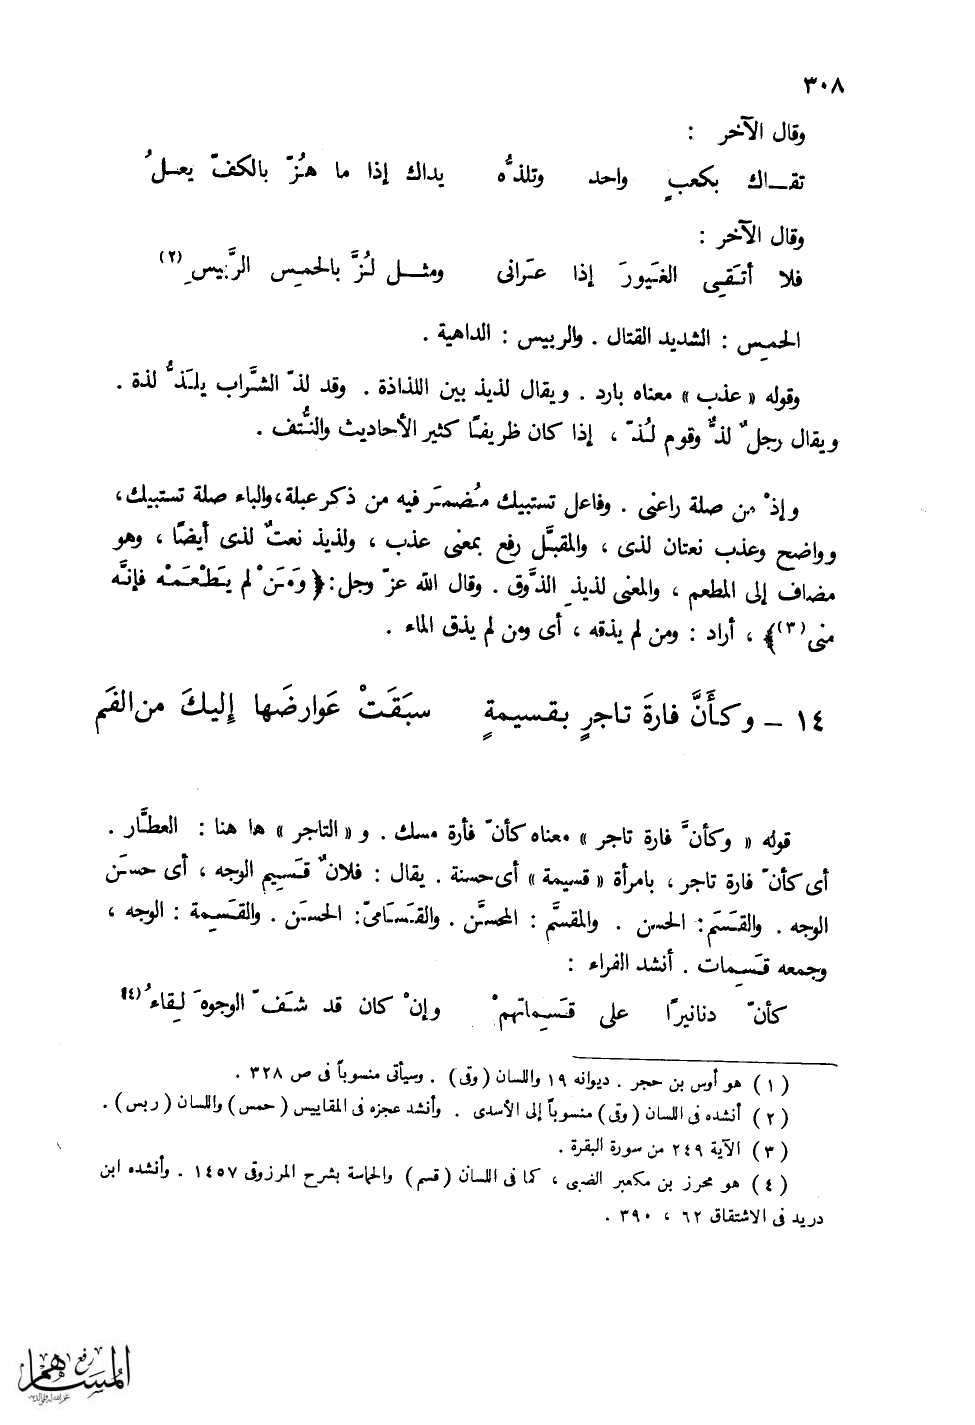 ٣٠٨
وقال الآخر :
تقــاك بكعبٍ واحد وتلذُّه يداك إذا ما هُزّ بالكفّ يعسلُ
وقال الآخر :
فلا أتَقِى الغَيورَ إذا عرَانى ومثــل لُزَّ بالحمِس الرَّبيسِ (٢)
الحمِس : الشديد القتال . والربيس : الداهية .
وقوله « عذب » معناه بارد . ويقال لذيذ بين اللذاذة . وقد لذّ الشَّراب يلَذُّ لذة .
ويقال رجلٌ لذٌّ وقوم لُذّ ، إذا كان ظريفًا كثير الأحاديث والنُّتف .
وإذْ من صلة راعنى . وفاعل تستبيك مُضمَر فيه من ذكر عبلة، والباء صلة تستبيك،
وواضح وعذب نعتان لذى ، والمقبَّل رفع بمعنى عذب ، ولذيذ نعتٌ لذى أيضًا ، وهو
مضاف إلى المطعم ، والمعنى لذيذِ الذَّوق . وقال الله عزّ وجل: ﴿ وَمَنْ لم يَطْعَمْه فإنَّه
منى (٣)﴾ ، أراد : ومن لم يذقه ، أى ومن لم يذق الماء .
١٤ – وكأَنَّ فارةَ تاجرٍ بقسيمةٍ سبَقَتْ عَوارضَها إليكَ من الفَم
قوله « وكأنَّ فارة تاجر » معناه كأنّ فأرة مسك . و « التاجر » ها هنا : العطَّار .
أى كأنّ فارة تاجر ، بامرأة « قسيمة » أى حسنة . يقال : فلانٌ قَسِيم الوجه ، أى حسَن
الوجه . والقَسَم : الحسن . والمقسَّم : المحسَّن . والقَسَامىّ: الحسَن . والقَسِمة : الوجه ،
وجمعه قَسِمات . أنشد الفراء :
كأنّ دنانيرًا على قَسِماتهمْ وإنْ كان قد شَفّ الوجوهَ لِقاءُ (٤)
(١) هو أوس بن حجر . ديوانه ١٩ واللسان (وقى) . وسيأتى منسوباً فى ص ٣٢٨ .
(٢) أنشده فى اللسان (وقى) منسوباً إلى الأسدى . وأنشد عجزه فى المقاييس (حمس) واللسان (ربس) .
(٣) الآية ٢٤٩ من سورة البقرة .
(٤) هو محرز بن مكعبر الضبى ، كما فى اللسان (قسم) والحماسة بشرح المرزوقى ١٤٥٧ . وأنشده ابن
دريد فى الاشتقاق ٦٢ ، ٣٩٠ .
رفع